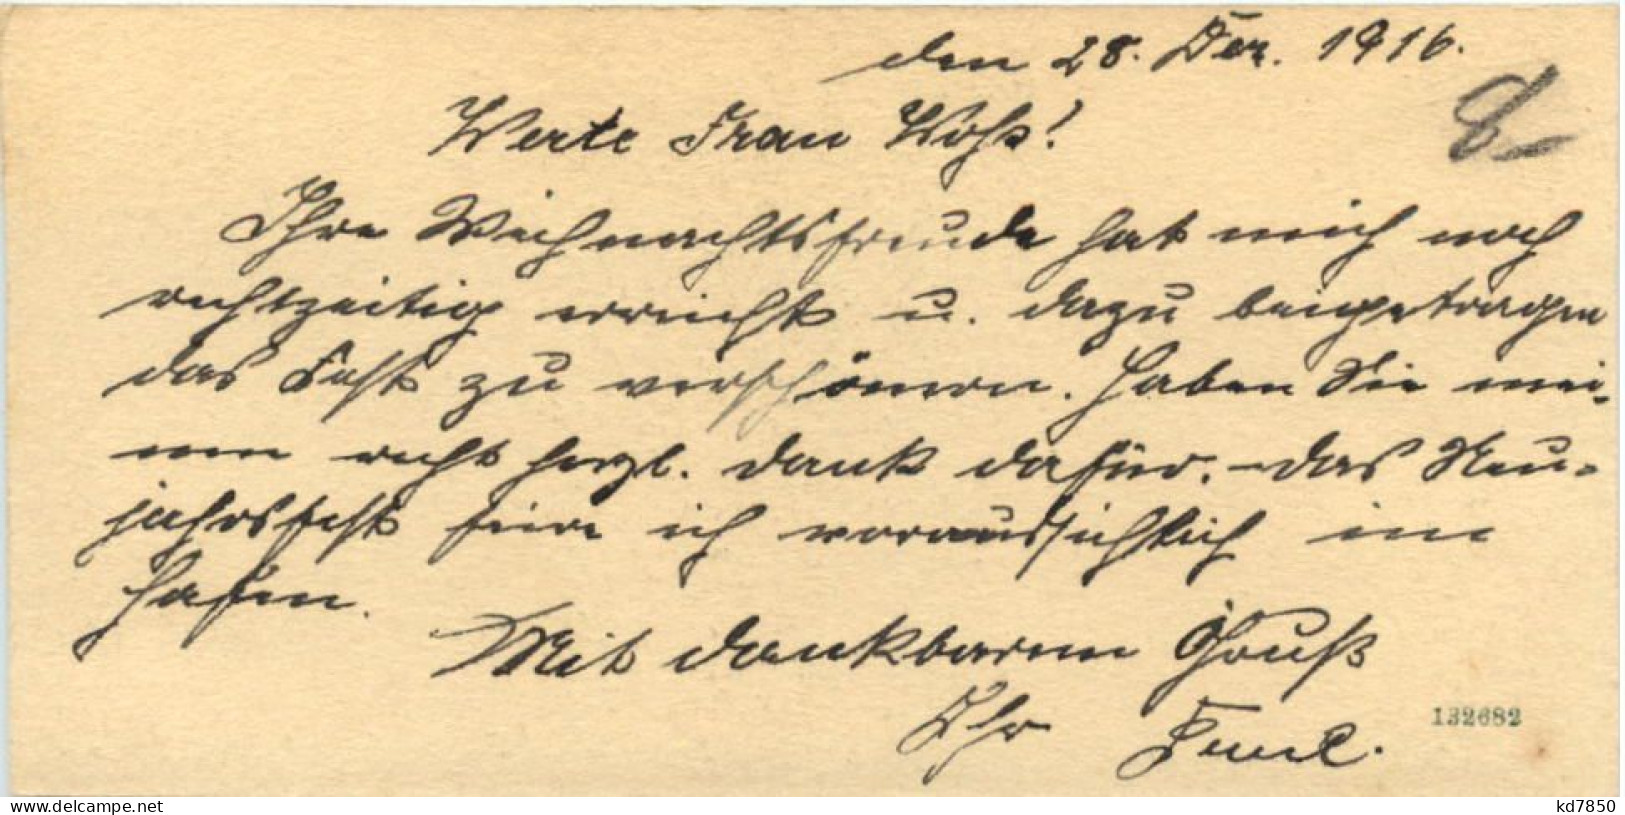 den 28. Dez. 1916.
Werte Frau
Ihre Weihnachtsfreude hat mich noch
rechtzeitig erreicht u. dazu beigetragen
das Fest zu verschönern. Haben Sie mei-
nen recht herzl. Dank dafür. – Das Neu-
jahrsfest feire ich voraussichtlich im
Hafen.
Mit dankbarem Gruß
Ihr
132682
www.delcampe.net
kd7850